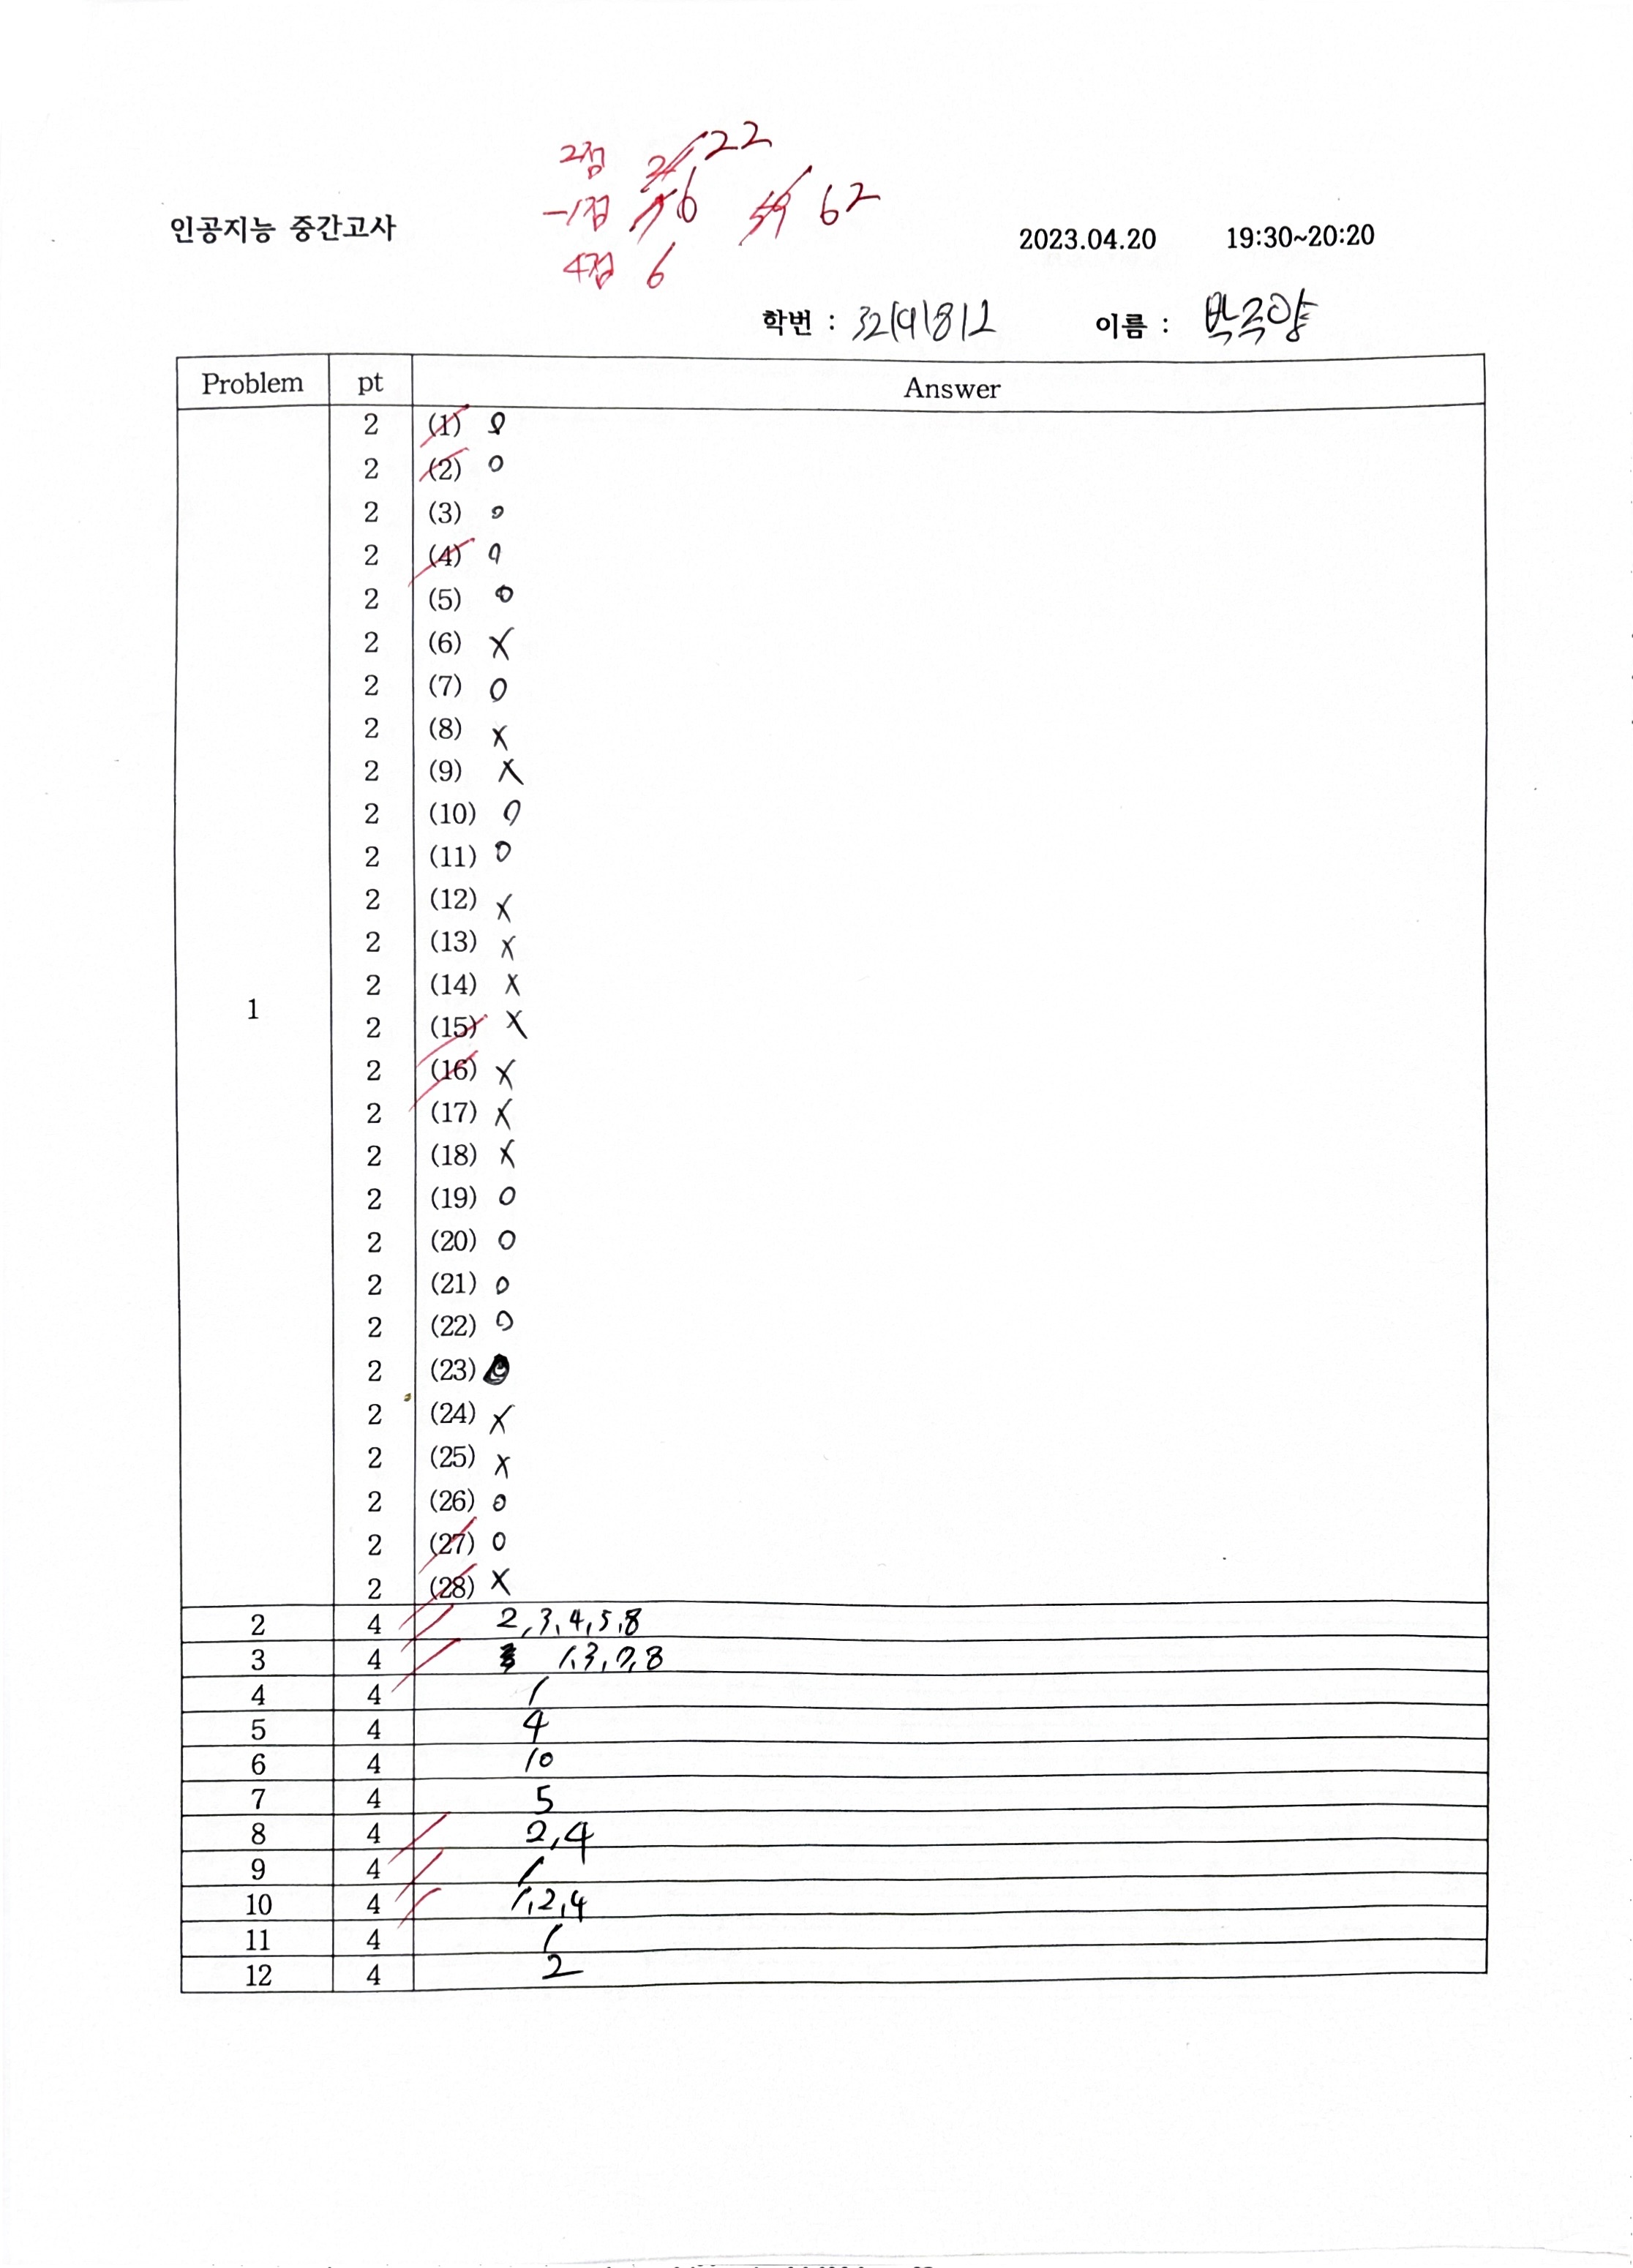 2점 21 22
-1점 6 59 62
인공지능 중간고사 2023.04.20 19:30~20:20
4점 6
학번 : 32191812 이름 :
Problem pt Answer
2 (1) O
2 (2) O
2 (3) O
2 (4) O
2 (5) O
2 (6) X
2 (7) O
2 (8) X
2 (9) X
2 (10) O
2 (11) O
2 (12) X
2 (13) X
2 (14) X
1
2 (15) X
2 (16) X
2 (17) X
2 (18) X
2 (19) O
2 (20) O
2 (21) O
2 (22) O
2 (23)
2 (24) X
2 (25) X
2 (26) O
2 (27) O
2 (28) X
2 4 2,3,4,5,8
3 4 1,3,7,8
4 4 1
5 4 4
6 4 10
7 4 5
8 4 2,4
9 4 1
10 4 1,2,4
11 4 1
12 4 2